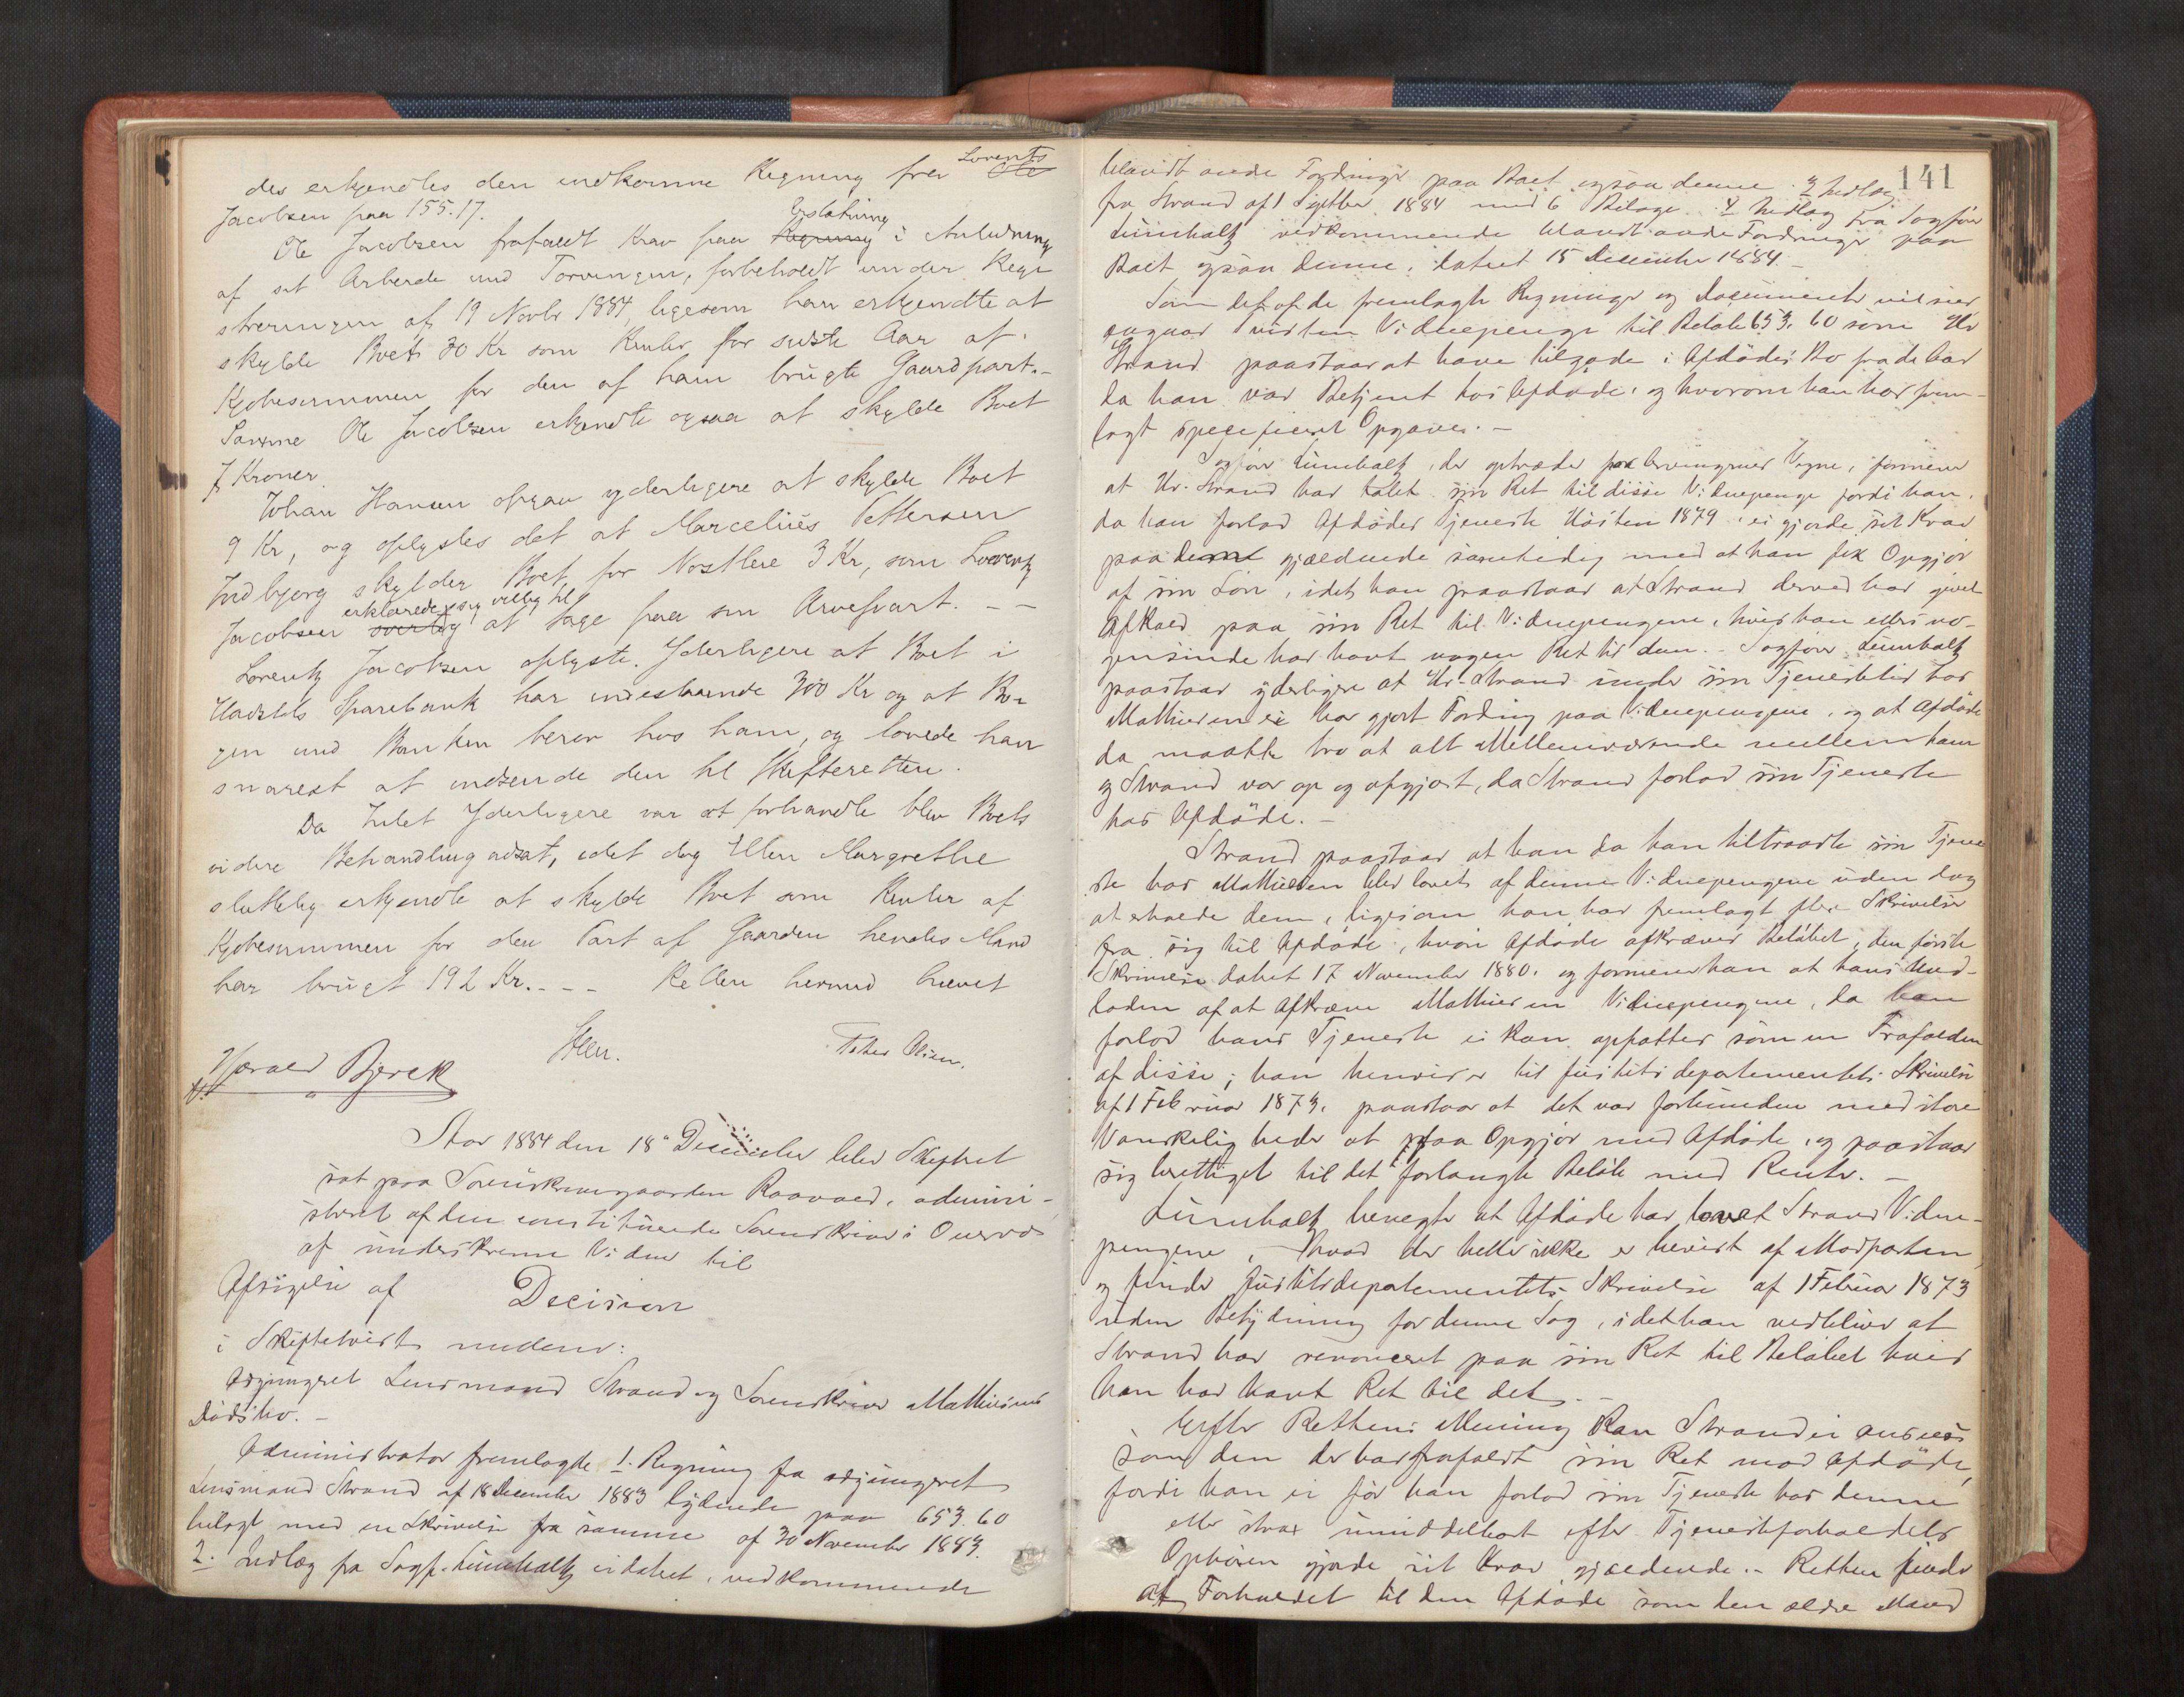 des erkjendtes den indkomne Regning fra Lorents Ole
Jacobsen paa 155.17.
Ole Jacobsen frafaldt Krav paa Regning Erstatning i Anledning
af sit Arbeide med Torvingen, forbeholdt under Regi-
streringen af 19 Novbr 1884, ligesom han erkjendte at
skylde Boet 30 Kr som Renter for sidste Aar af
Kjøbesummen for den af ham brugte Gaardpart.-
Samme Ole Jacobsen erkjendte ogsaa at skylde Boet
7 Kroner.
Johan Hansen opgav yderligere at skylde Boet
9 Kr, og oplystes det at Marcelius Pettersen
Indbjerg skylder Boet for 3 Kr, som Lorentz
Jacobsen erklærede sig villig til at tage paa sin Arvepart. - -
Lorentz Jacobsen oplyste. Yderligere at Boet i
Hadsels Sparebank har indestaaende 300 Kr og at Bo-
gen med Banken beror hos ham, og lovede han
snarest at indsende den til Skifteretten.
Da Intet Yderligere var at forhandle blev Boets
videre Behandling udsat, idet dog Ellen Margrethe
sluttelig erkjendte at skylde Boet som Renter af
Kjøbesummen for den Part af Gaarden hendes Mand
har brugt 192 Kr. - - - Retten hermed hævet
Harald Bjerck
Peter Olsen.
Aar 1884 den 18' December blev Skifteret
sat paa Sorenskrivergaarden Raavaed, admini-
streret af den constituerede Sorenskriver i Overvær
af underskrevne Vidner til
Afsigelse af Decision
i Skiftetvist mellem:
Adjungeret Lensmand Strand og Sorenskriver Mathiesens
Dødsbo. -
Administrator fremlagde 1. Regning fra adjungeret
Lensmand Strand af 18 December 1883 lydende paa 653.60
bilagt med en Skrivelse fra samme af 30 November 1883.
2. Indlæg fra Sagf. Lumholtz udateret, vedkommende
141
blandt andre Fordringer paa Boet ogsaa denne. 3 Indlæg
fra Strand af 1 Septber 1884 med 6 Bilage. 4 Indlæg fra Sagfører
Lumholtz vedkommende blandt andre Fordringer paa
Boet ogsaa denne, dateret 15 December 1884. -
Som det af de fremlagte Regninger og Documenter vil sees
angaar Tvisten Vidnepenge til Beløb 653. 60 som Hr
Strand paastaar at have tilgode i Afdødes Bo fra de Aar
da han var Betjent hos Afdøde, og hvorom han har frem-
lagt specificeret Opgave. -
Sagfører Lumholtz, der optræder paa Arvingernes Vegne, formener
at Hr. Strand har tabt sin Ret til disse Vidnepenge fordi han,
da han forlod Afdødes Tjeneste Høsten 1879, ei gjorde sit Krav
paa dem gjældende samtidig med at han fik Opgjør
af sin Løn, idet han paastaar at Strand derved har givet
Afkald paa sin Ret til Vidnepengene, hvis han ellers no-
gensinde har havt nogen Ret til dem. - Sagfører Lumholtz
paastaar yderligere at Hr. Strand under sin Tjenestetid hos
Mathiesen ei har gjort Fordring paa Vidnepengene, og at Afdøde
da maatte tro at alt Mellemværende mellem ham
og Strand var op og afgjort, da Strand forlod sin Tjeneste
hos Afdøde. -
Strand paastaar at han da han tiltraadte sin Tjene-
ste hos Mathiesen blev lovet af denne Vidnepengene uden dog
at erholde dem, ligesom han har fremlagt flere Skrivelser
fra sig til Afdøde, hvori Afdøde afkræves Beløbet, den første
Skrivelse dateret 17 November 1880, og formener han at hans Und-
laden af at afkræve Mathiesen Vidnepengene, da han
forlod hans Tjeneste ei kan opfattes som en Frafalden
af disse; han henviser til Justitsdepartementets Skrivelse
af 1 Februar 1873, paastaar at det var forbunden med store
Vanskeligheder at faa Opgjør med Afdøde, og paastaar
sig berettiget til det forlangte Beløb med Renter. -
Lumholtz benegter at Afdøde har lovet Strand Vidne-
pengene, hvad der heller ikke er bevist af Modparten,
og finder Justitsdepartementets Skrivelse af 1 Februar 1873
uden Betydning for denne Sag, idet han vedbliver at
Strand har renonceret paa sin Ret til Beløbet hvis
han har havt Ret til det. -
Efter Rettens Mening kan Strand ei ansees
som den der har frafaldt sin Ret mod Afdøde,
fordi han ei før han forlod sin Tjeneste hos denne
eller strax umiddelbart efter Tjenesteforholdets
Ophøren gjorde sit Krav gjældende. - Retten finder
at Forholdet til den Afdøde som den ældre Mand